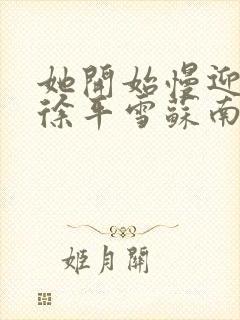 她開始慢迎
徐平雪蘇南
姬月關